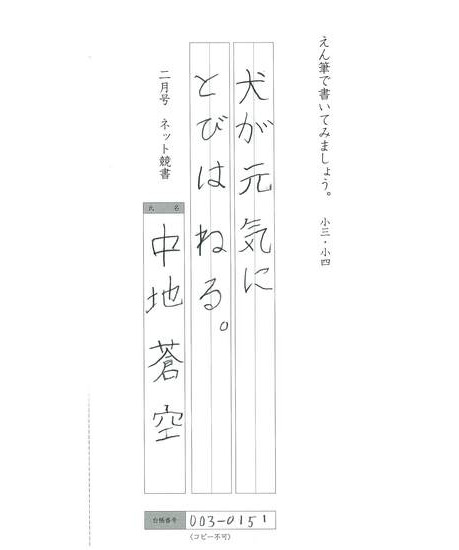 えん筆で書いてみましょう。 小三・小四
犬が元気に
とびはねる。
二月号 ネット競書
氏 名
中地 蒼空
台帳番号 003-0151
(コピー不可)